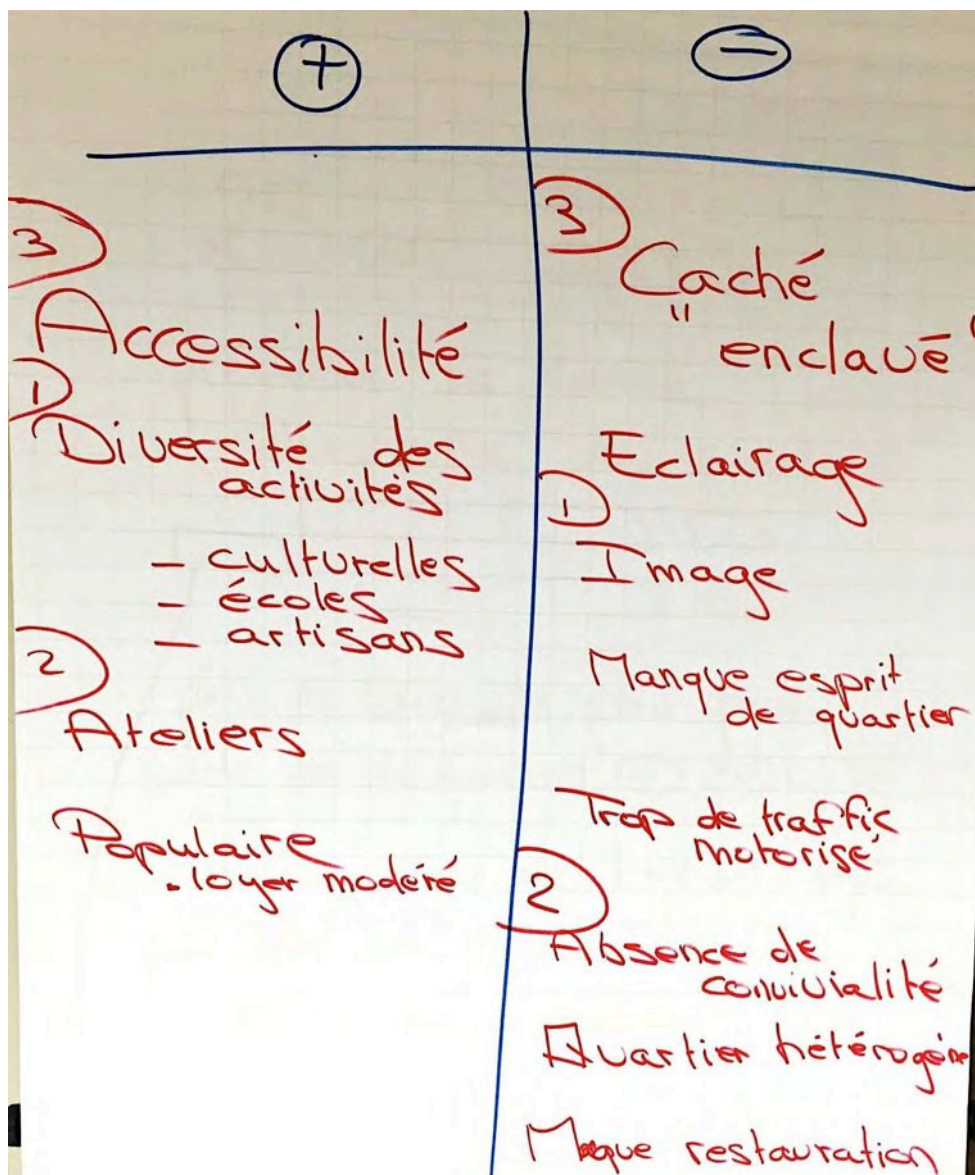 +
3
Accessibilité
1
Diversité des
activités
- culturelles
- écoles
- artisans
2
Ateliers
Populaire
. loyer modéré
-
3
Caché
"enclavé"
Eclairage
1
Image
Manque esprit
de quartier
Trop de traffic
motorisé
2
Absence de
convivialité
Quartier hétérogène
Manque restauration